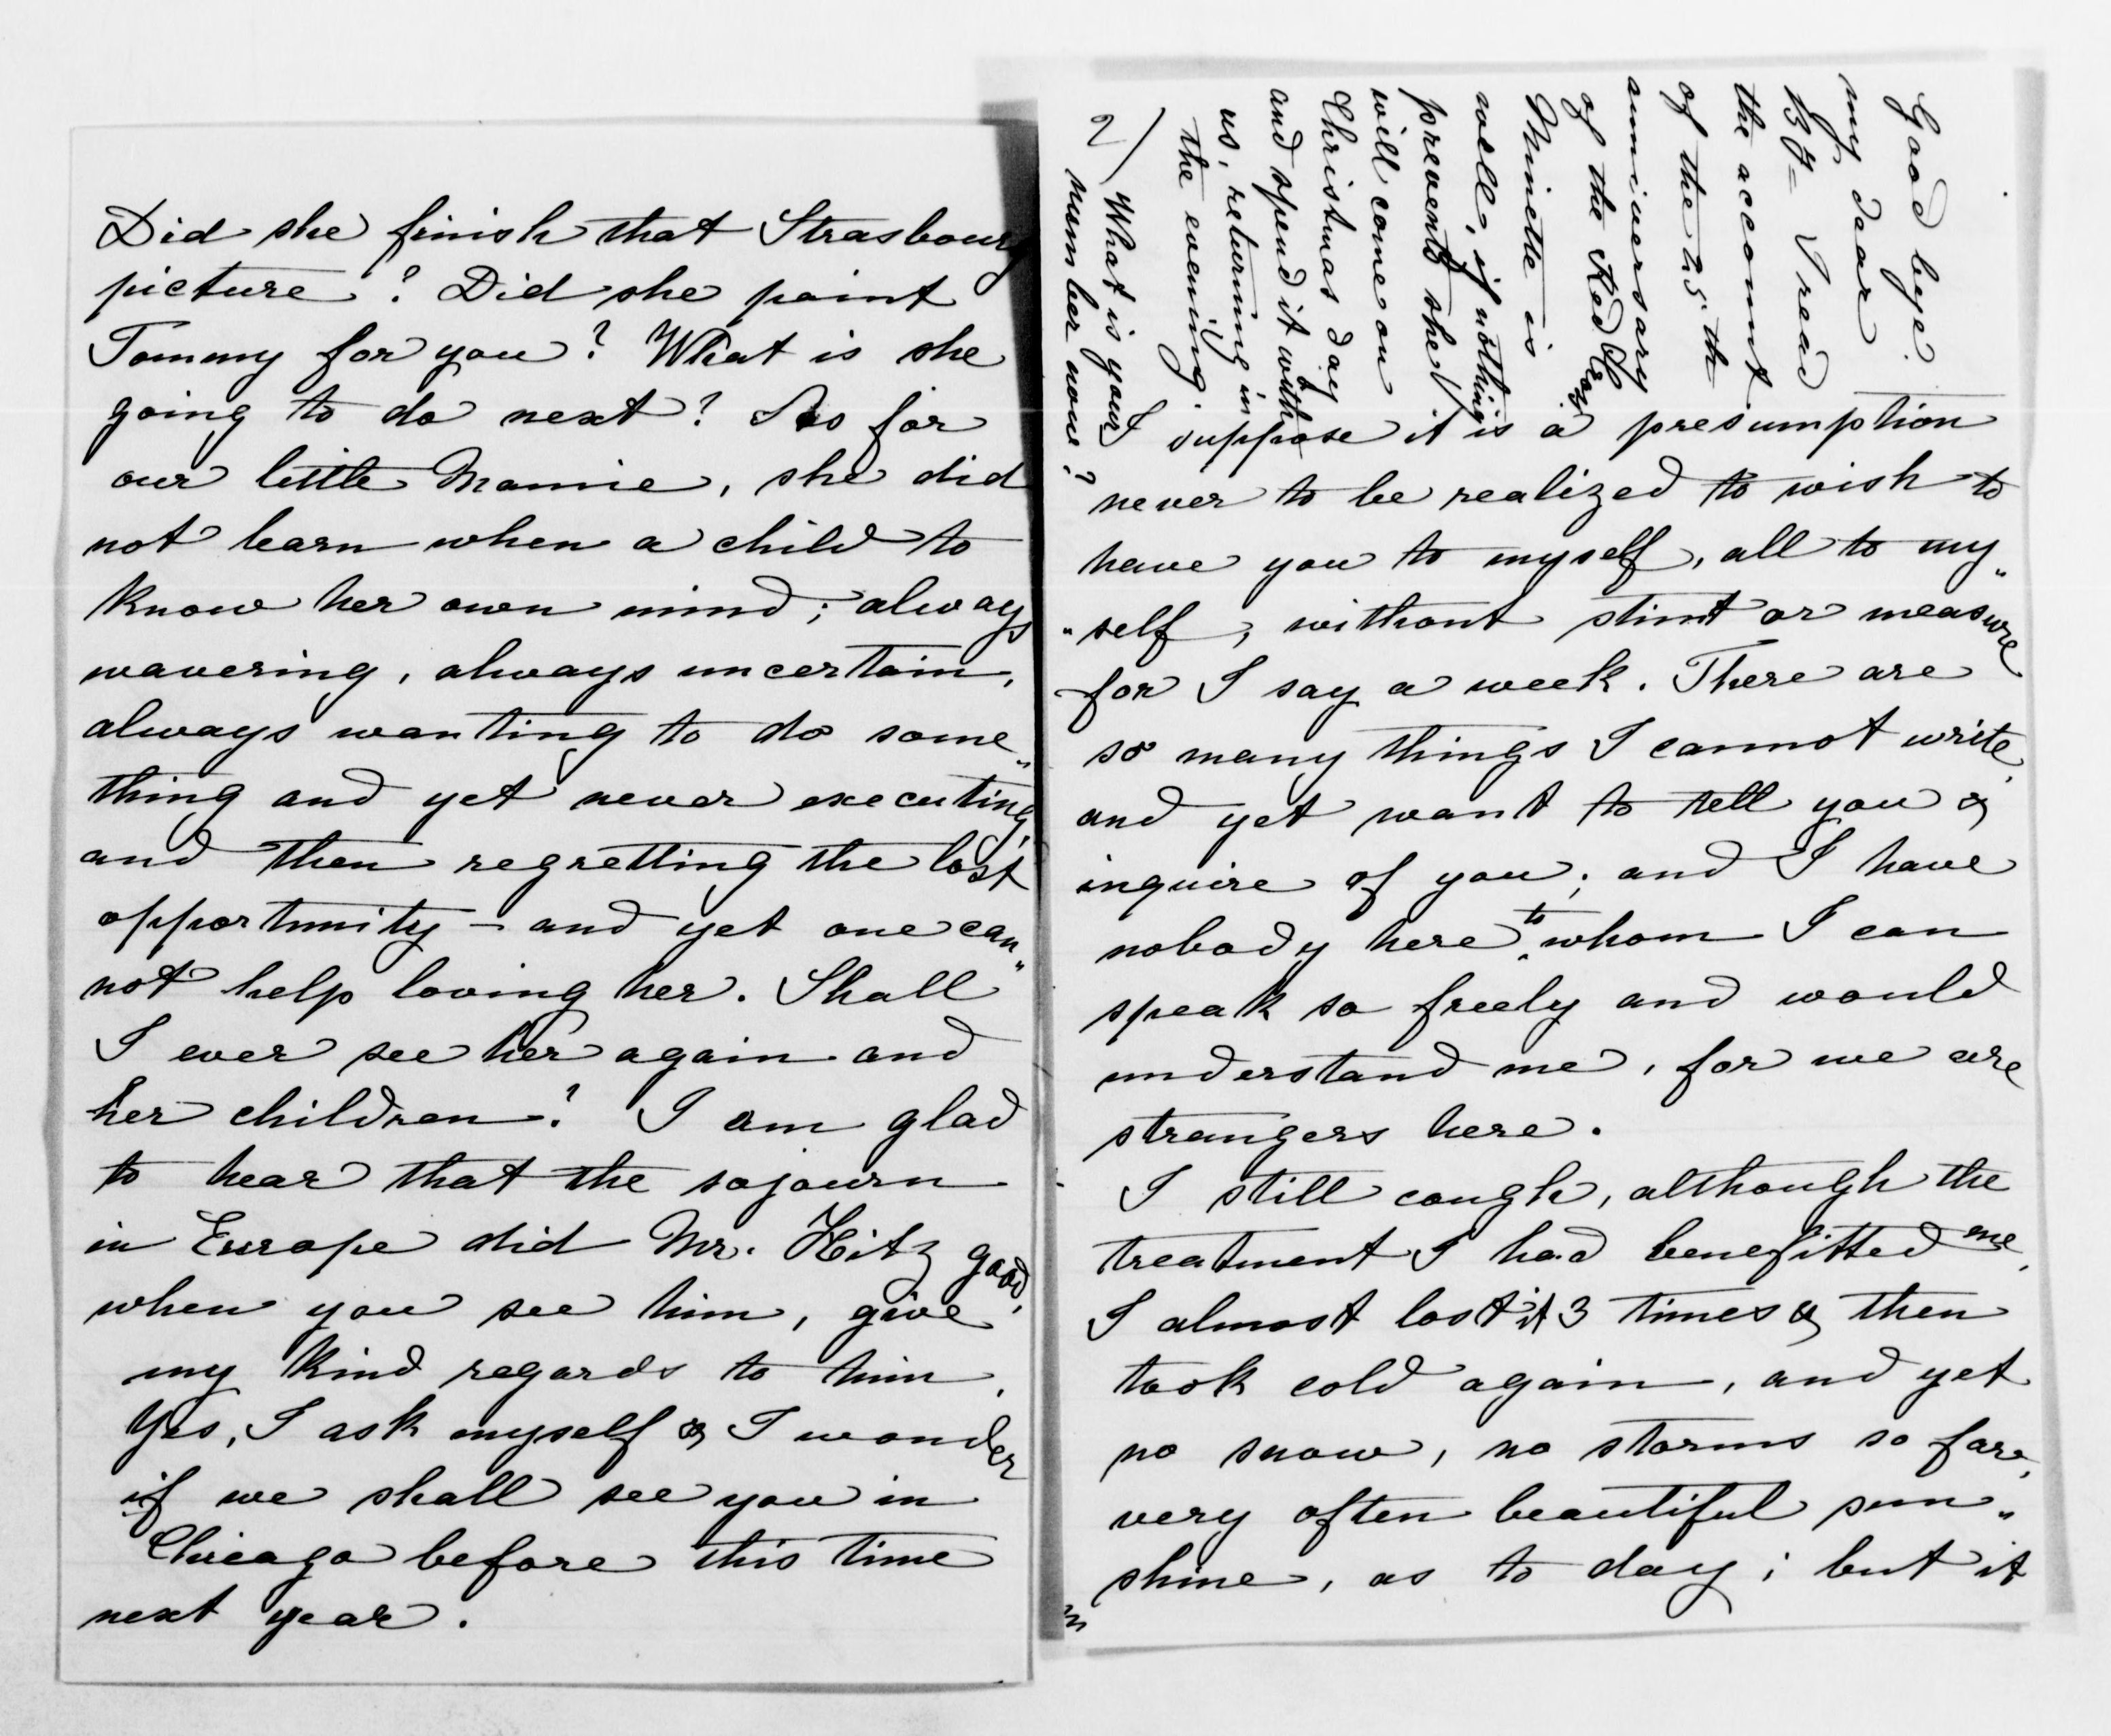 Did she finish that Strasbourg
picture? Did she paint
Tommy for you? What is she
going to do next? As for
our little Mamie, she did
not learn when a child to
know her own mind; always
wavering, always uncertain,
always wanting to do some„
thing and yet never executing,
and then regretting the lost
opportunity – and yet one can„
not help loving her. Shall
I ever see her again and
her children? I am glad
to hear that the sojourn
in Europe did Mr. Hitz good,
when you see him, give
my kind regards to him.
Yes, I ask myself & I wonder
if we shall see you in
Chicago before this time
next year.
Good bye.
my dear
I read
the account
of the 25th
anniversary
of the Red Cross
Minette is
well, if nothing
prevents she
will come on
Christmas day
and spend it with
us, returning in
the evening.
2) What is your
number now?
I suppose it is a presumption
never to be realized to wish to
have you to myself, all to my„
„self, without stint or measure
for I say a week. There are
so many things I cannot write,
and yet want to tell you &
inquire of you; and I have
nobody here to whom I can
speak so freely and would
understand me, for we are
strangers here.
I still cough, although the
treatment I had benefitted me,
I almost lost it 3 times & then
took cold again, and yet
no snow, no storms so far,
very often beautiful sun„
shine, as to day; but it